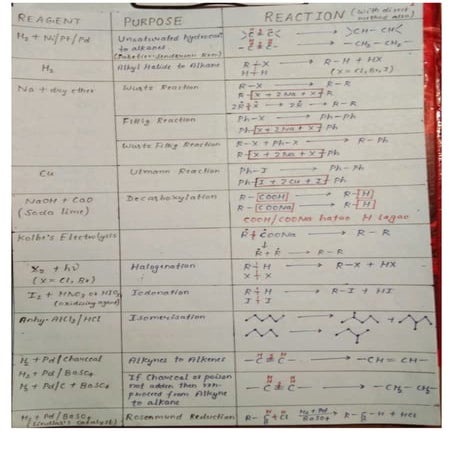 REAGENT PURPOSE REACTION (with direct method also)
H₂ + Ni/Pt/Pd Unsaturated hydrocarbon to alkanes
>C=C< → >CH-CH<
-C≡C- → -CH₂-CH₂-
H₂ Alkyl Halide to Alkane R-X → R-H + HX
H+H (X = Cl, Br, I)
Na + dry ether Wurtz Reaction R-X → R-R
R-[X + 2Na + X]-R
2Ṙ → R-R
Fittig Reaction Ph-X → Ph-Ph
Ph-[X + 2Na + X]-Ph
Wurtz Fittig Reaction R-X + Ph-X → R-Ph
R-[X + 2Na + X]-Ph
Cu Ulmann Reaction Ph-I → Ph-Ph
Ph-[I + 2Cu + I]-Ph
NaOH + CaO Decarboxylation R-[COOH] → R-[H]
(Soda lime) R-[COONa] → R-[H]
COOH/COONa hatao H lagao
Kolbe's Electrolysis R-COONa → R-R
↓
Ṙ + Ṙ → R-R
X₂ + hν Halogenation R+H → R-X + HX
(X = Cl, Br) X+X
I₂ + HNO₃ or HIO₃ Iodonation R+H → R-I + HI
(oxidising agent) I+I
Anhy-AlCl₃/HCl Isomerisation
H₂ + Pd/Charcoal Alkynes to Alkenes -C≡C- → -CH=CH-
H₂ + Pd/BaSO₄
H₂ + Pd/C + BaSO₄ If Charcoal or poison not added then
proceed from Alkyne to alkane
-C≡C- → -CH₂-CH₂-
H₂ + Pd/BaSO₄ Rosenmund Reduction R-C+Cl H₂+Pd BaSO₄ → R-C-H + HCl